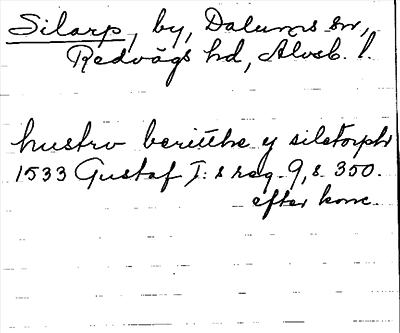 Silarp, by, Dalums sn,
Redvägs hd, Älvsb. l.
hustrv beritthe y siletorph
1533 Gustaf I:s reg. 9, s. 350.
efter konc.